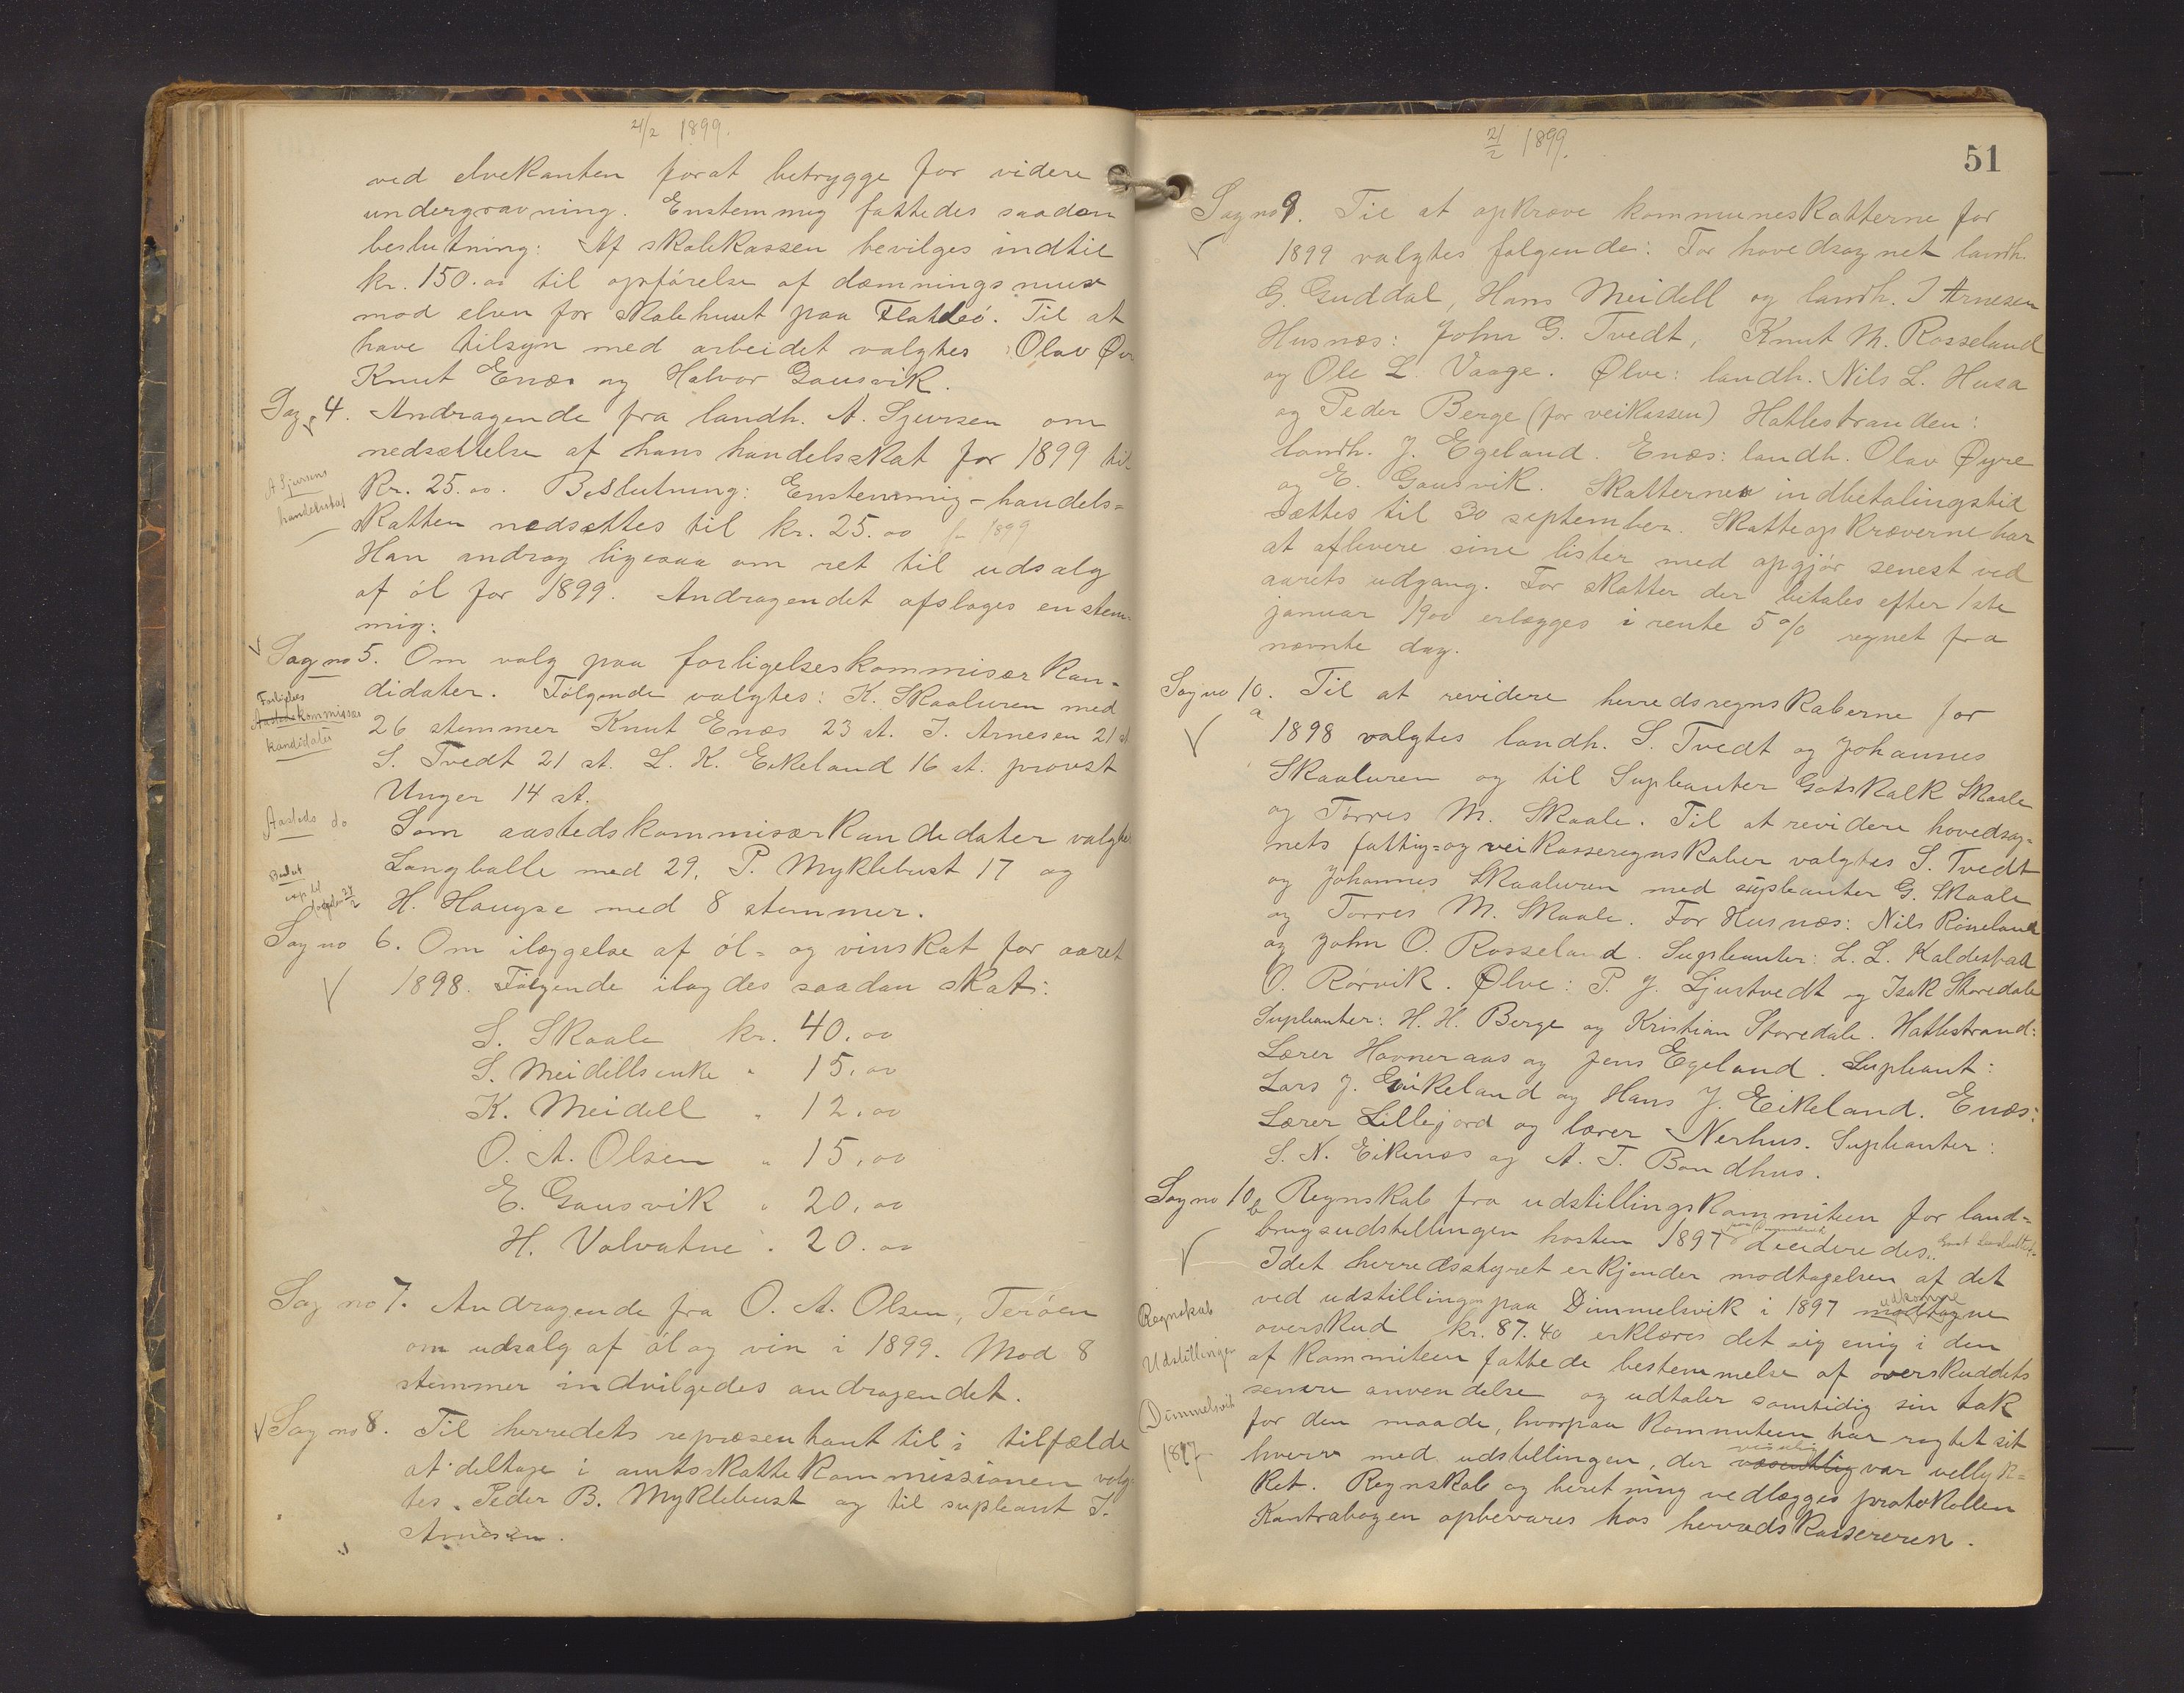 21/2 1899.
ved elvekanten forat betrygge for videre
undergravning. Enstemmig fattedes saadan
beslutning: Af skolekassen bevilges indtil
kr. 150.00 til opførelse af dæmningsmur
mod elven for skolehuset paa Flatebø. Til at
have tilsyn med arbeidet valgtes Olav Øyre
Knut Enæs og Halvor Gausvik.
Sag 4. Andragende fra landh. A. Sjursen om
nedsættelse af hans handelsskat for 1899 til
A Sjursens
handelsskat
kr. 25.00. Beslutning: Enstemmig - handels=
skatten nedsættes til kr. 25.00 for 1899
Han androg ligesaa om ret til udsalg
af øl for 1899. Andragendet afsloges enstem-
mig.
Sag no 5. Om valg paa forligelseskommisær kan-
didater. Følgende valgtes: K. Skaaluren med
Forligelses
Aastedskommissær
kandidater
26 stemmer Knut Enæs 23 st. I. Arnesen 21 st
S. Tvedt 21 st. L. K. Eikeland 16 st. provst
Unger 14 st.
Aasteds do
Som aastedskommisærkandidater valgtes
Langballe med 29, P. Myklebust 17 og
H. Haugse med 8 stemmer.
Sag no 6. Om ilæggelse af øl= og vinskat for aaret
1898. Følgende ilagdes saadan skat:
S. Skaale kr. 40.00
S. Meidells enke " 15.00
K. Meidell " 12.00
O. A. Olsen " 15.00
E. Gausvik " 20.00
H. Valvatne " 20.00
Sag no 7. Andragende fra O. A. Olsen, Terøen
om udsalg af øl og vin i 1899. Mod 8
stemmer indvilgedes andragendet.
Sag no 8. Til herredets repræsentant til i tilfælde
at deltage i amtsskattekommissionen valg-
tes Peder B. Myklebust og til supleant I.
Arnesen.
21/2 1899.
51
Sag no 9. Til at opkræve kommuneskatterne for
1899 valgtes følgende: For hovedsognet landh.
G. Guddal, Hans Meidell og landh. I Arnesen
Husnæs: John G. Tvedt, Knut M. Rosseland
og Ole L. Vaage. Ølve: landh. Nils L. Husa
og Peder Berge (for veikassen) Hatlestranden:
landh. J. Egeland. Enæs: landh. Olav Øyre
og E. Gausvik. Skatternes indbetalingstid
sættes til 30 september. Skatteopkræverne har
at aflevere sine lister med opgjør senest ved
aarets udgang. For skatter der betales efter 1ste
januar 1900 erlægges i rente 5 % regnet fra
nævnte dag.
Sag no 10. a Til at revidere herredsregnskaberne for
1898 valgtes landh. S. Tvedt og Johannes
Skaaluren og til Supleanter Gotskalk Skaale
og Torres M. Skaale. Til at revidere hovedsog=
nets fattig= og veikasseregnskaber valgtes S. Tvedt
og Johannes Skaaluren med supleanter G. Skaale
og Torres M. Skaale. For Husnæs: Nils Røneland
og John O. Rosseland. Supleanter: L. L. Kaldestad
O. Rørvik. Ølve: P. J. Ljustvedt og Isak Storedale
Supleanter: H. H. Berge og Kristian Storedale. Hatlestrand:
Lærer Havneraas og Jens Egeland. Supleant:
Lars J. Eikeland og Hans J. Eikeland. Enæs:
Lærer Lillejord og lærer Nerhus. Supleanter:
S. N. Eikenæs og A. T. Bondhus.
Sag no 10 b Regnskab fra udstillingskommiteen for land=
brugsudstillingen høsten 1897 decideredes.
Idet herredsstyret erkjender modtagelsen af det
ved udstillingen paa Dimmelsvik i 1897 modtagne udkomne
Regnskab
Udstillingen
Dimmelsvik
1897
overskud kr. 87.40 erklæres det sig enig i den
af kommiteen fattede bestemmelse af overskuddets
senere anvendelse og udtaler samtidig sin tak
for den maade, hvorpaa kommiteen har røgtet sit
hverv med udstillingen, der væsentlig var vellyk=
ket. Regnskab og beretning vedlægges protokollen
Kontrabogen opbevares hos herredskassereren.